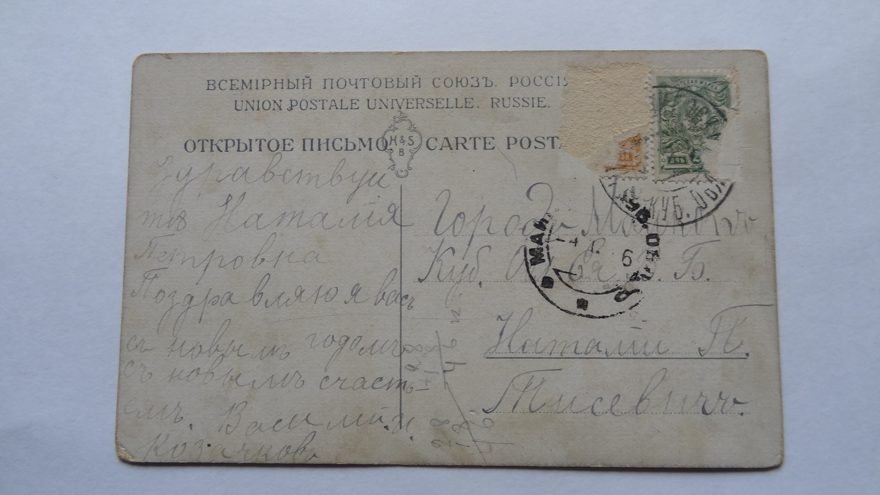 ВСЕМІРНЫЙ ПОЧТОВЫЙ СОЮЗЪ. РОССІЯ
UNION POSTALE UNIVERSELLE. RUSSIE.
ОТКРЫТОЕ ПИСЬМО
H & S
B
CARTE POSTA
Здравствуй
те Наталія
Петровна
Поздравляю я вас
съ новымъ годомъ
съ новымъ счасть
емъ. Василій
Козачковъ
Городъ Майкопъ
Куб.
Наталіи П.
Тисевичъ
КУБ. ОБЛ
МАЙ
ОБЛ
6
28
18
46